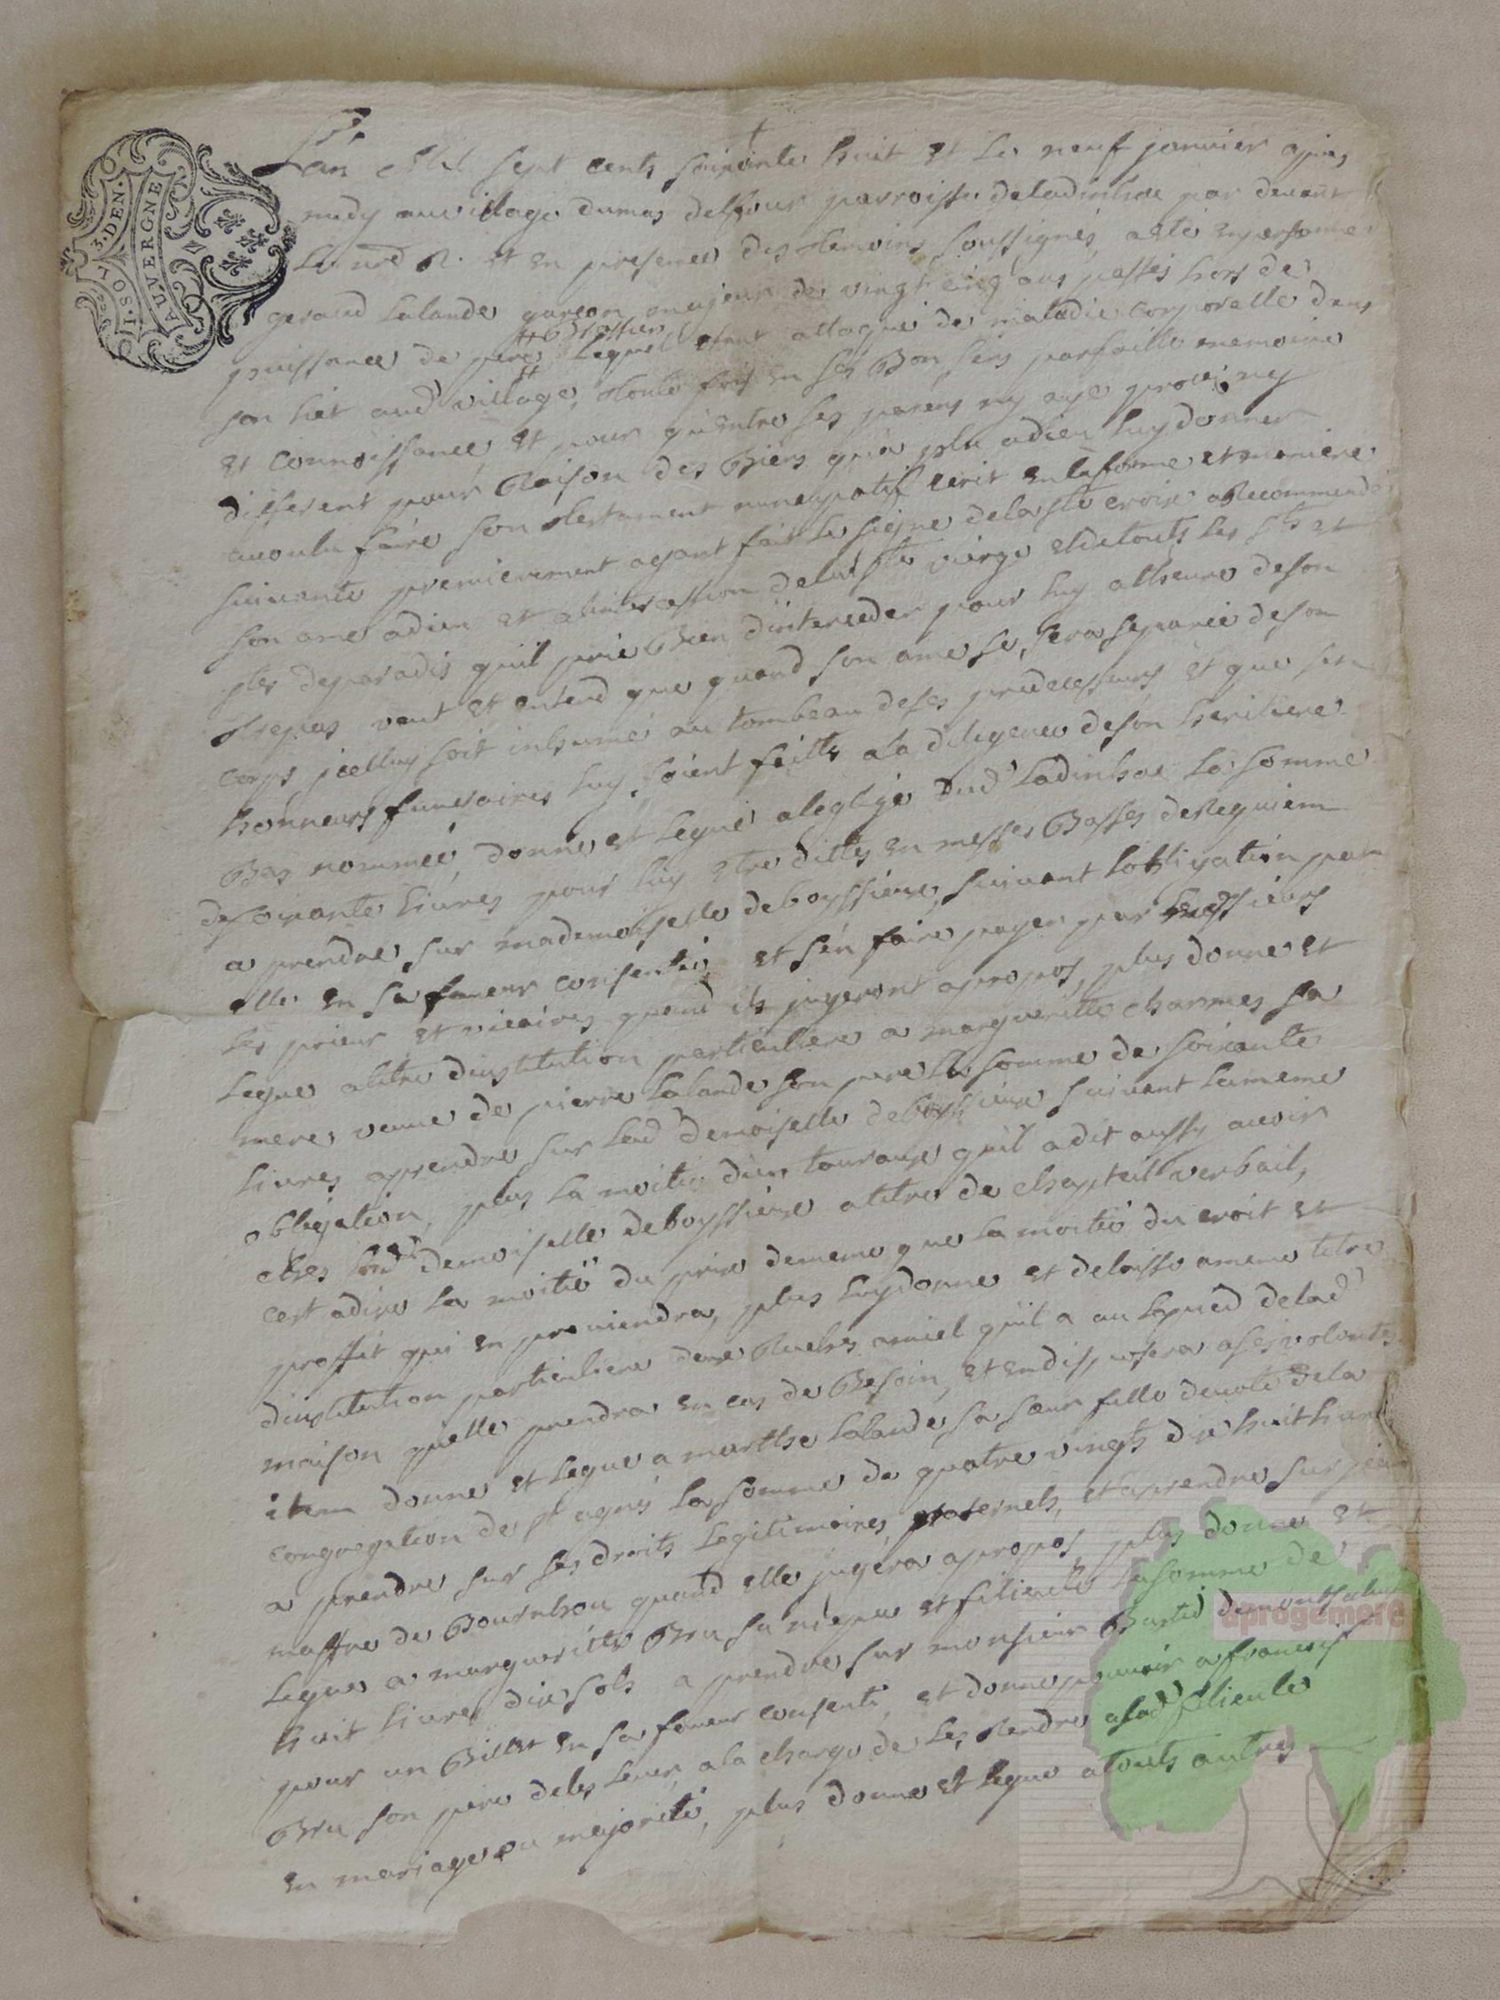 I. SOL 3. DEN.
AUVERGNE
L'an Mil sept cents soixante huit et le neuf janvier apres
midy au village dumas delfour parroisse deladinhac par devant
Le nre R. et en presence des temoins soussignés a eté en personne
geraud Lalande garçon majeur de vingt cinq ans passés hors de
puissance de pere # lequel etant attaqué de maladie corporelle dans
# Brassier
son liet aud village, toute fois en ses Bon sens parfaitte memoire
et connoissance et pour qu'entre ses parens ny aye proces ny
different pour Raison des Biens qu'a plu a dieu luy donner
a voulu faire son testament nuncupatif ecrit en la forme et maniere
suivante premierement ayant fait le signe dela ste croix a Recommendé
son ame a dieu et a l'intercession dela ste vierge et de touts les sts et
stes de paradis qu'il prie Bien d'interceder pour luy a lheure de son
trepas veut et entend que quand son ame se sera separée de son
corps icelluy soit inhumé au tombeau de ses predecesseurs et que ses
honneurs funeraires luy soient faitts a la diligence de son heritiere
Bas nommée, donne et legue a leglize dud Ladinhac la somme
de soixante livres pour luy etre dittes en messes Basses de Requiem
a prendre sur mademoiselle deboyssieux, suivant lobligation par
elle en sa faveur consentie et s'en faire payer par messieurs
les prieur et vicaires quand ils jugeront apropos, plus donne et
legue a titre d'institution particuliere a margueritte charmes sa
mere veuve de pierre Lalande son pere la somme de soixante
livres a prendre sur lad demoiselle deboyssieux suivant la meme
obligation, plus la moitié d'un taureaux qu'il a dit aussy avoir
ches lad demoiselle deboyssieux a titre de chapteil verbail,
c'est a dire la moitié du prix de meme que la moitié du croit et
proffit qui en proviendra, plus luy donne et delaisse a meme titre
d'institution particuliere deux Ruches a miel qu'il a au lad de lad
maison qu'elle prendra en cas de Besoin, et en disposera a ses volontés
item donne et legue a marthe Lalande sa sœur fille devote de la
congregation de ste agnés la somme de quatre vingts dix huit livres
a prendre sur ses droits legitimaires paternels, et a prendre sur
maffre de Bournhou quand elle jugera apropos, plus donne et
legue a margueritte Bru sa niepce et filieule la somme de
huit livres dix sols a prendre sur monsieur Bastid de montsalvi
pour un Billet en sa faveur consenti, et donne pouvoir a francois
Bru son pere de les lever a la charge de les Rendre a lad filieule
en mariage ou majorité, plus donne et legue a touts autres
aprogemere